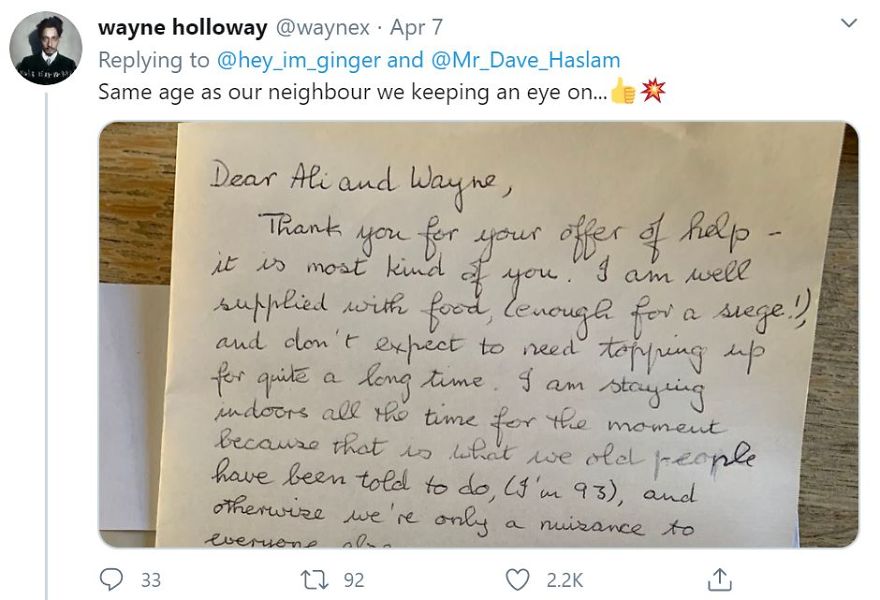 wayne holloway @waynex · Apr 7
Replying to @hey_im_ginger and @Mr_Dave_Haslam
Same age as our neighbour we keeping an eye on...👍💥
Dear Ali and Wayne,
Thank you for your offer of help -
it is most kind of you. I am well
supplied with food, (enough for a siege!),
and don't expect to need topping up
for quite a long time. I am staying
indoors all the time for the moment
because that is what we old people
have been told to do, (I'm 93), and
otherwise we're only a nuisance to
everyone
33 92 2.2K